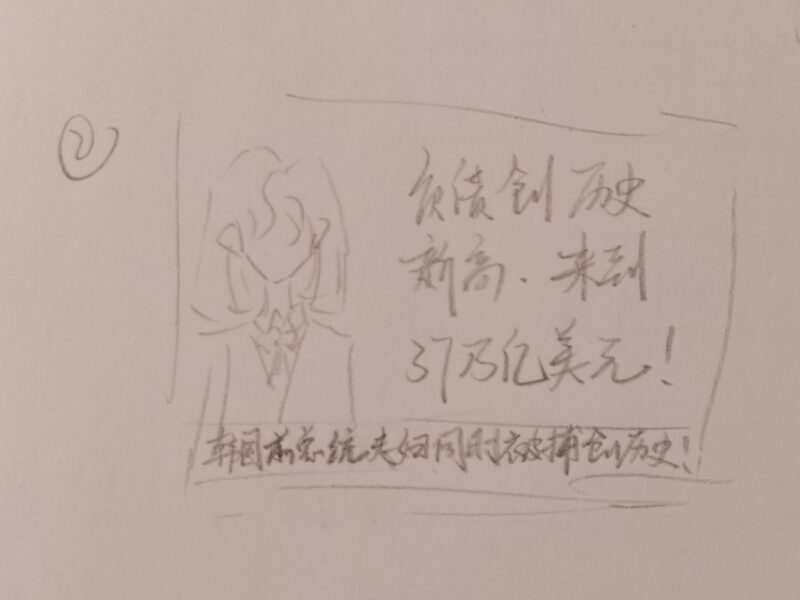 ②
负债创历史
新高.来到
37万亿美元!
韩国前总统夫妇同时被捕创历史!